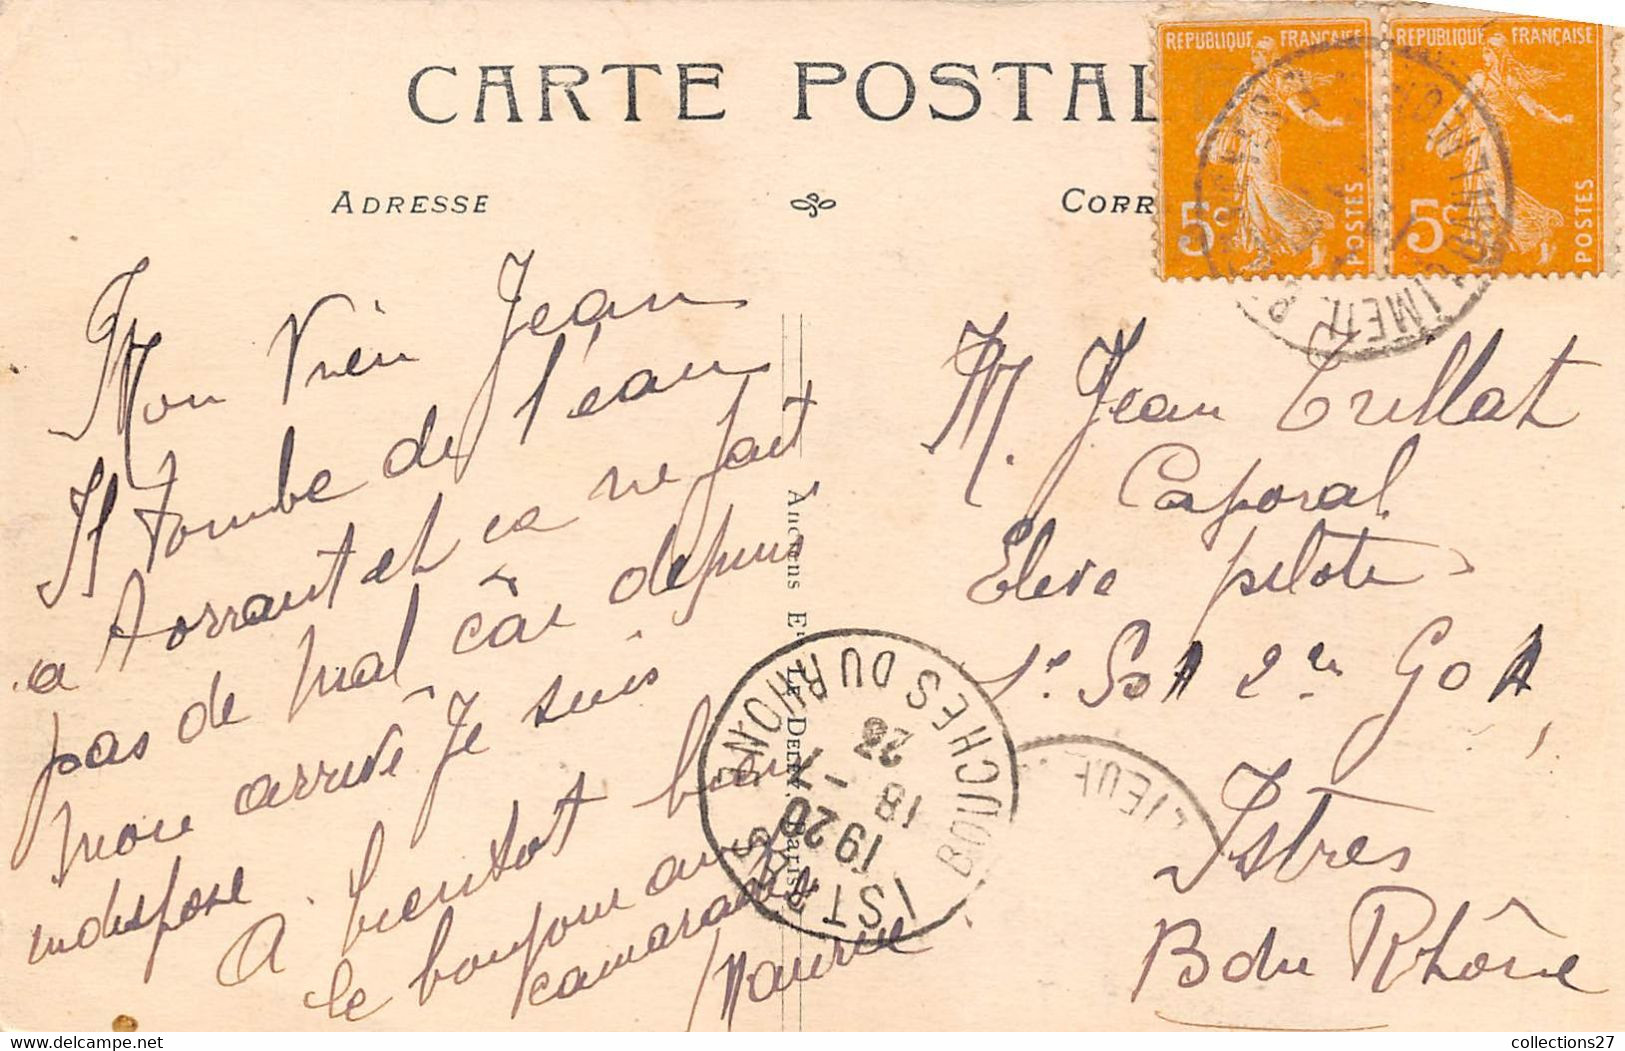 CARTE POSTAL
ADRESSE
CORR
REPUBLIQUE FRANÇAISE
5c
POSTES
REPUBLIQUE FRANÇAISE
5c
POSTES
Mon Vieu Jean
Il tombe de l'eau
a torrant et ca ne fait
pas de mal câr depuis
mon arrivé Je suis
indispose
A bientot bien
le bonjour aux
camarades
Maurice
M. Jean Trillat
Caporal
Eleve pilote
Istres
B du Rhône
Anciens Ets Le Deley, Paris
ISTRES BOUCHES DU RHONE
18
1920
collections27